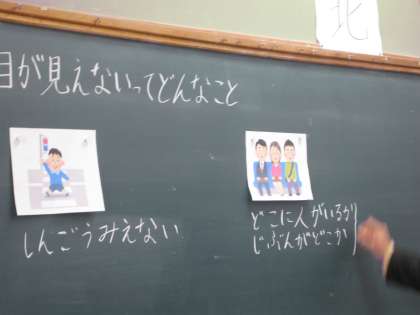 北
目が見えないってどんなこと
しんごうみえない
どこに人がいるか
じぶんがどこか